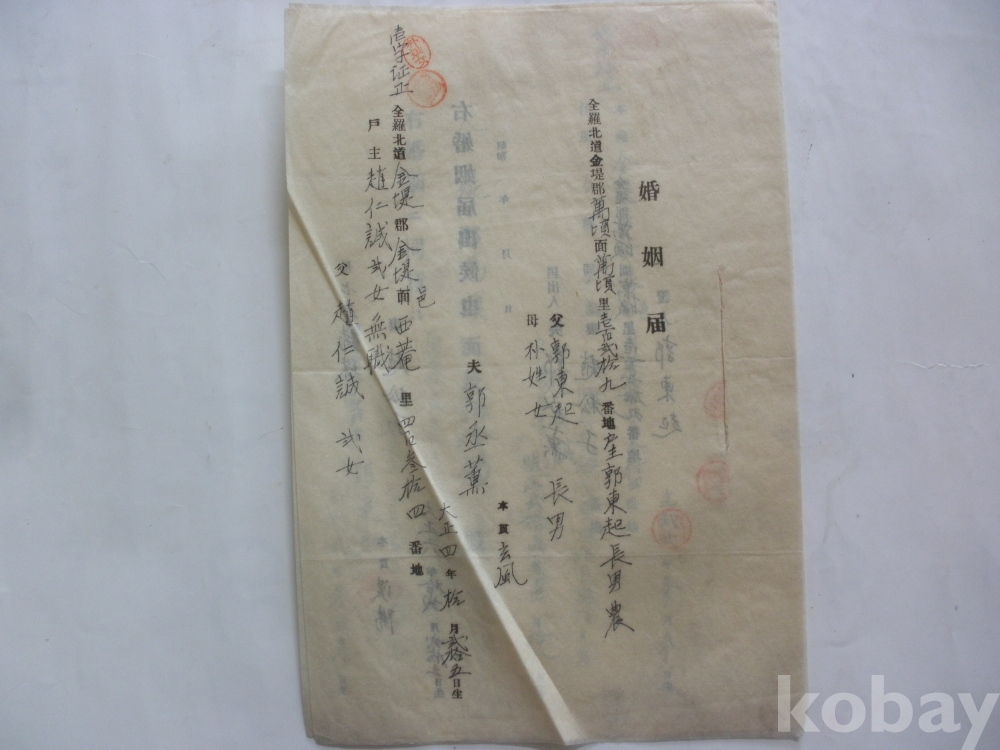 婚姻届
全羅北道金堤郡萬頃面萬頃里壱百弐拾九番地戸主郭東起長男農
父 郭東起 長男
母 朴姓女
本貫 玄風
夫 郭丞薫
大正四年拾月弐拾五日生
全羅北道金堤郡金堤邑面西菴里四百参拾四番地
戸主趙仁誠弐女無職
父 趙仁誠 弐女
壱字訂正
右婚姻届出候也
年 月 日
kobay